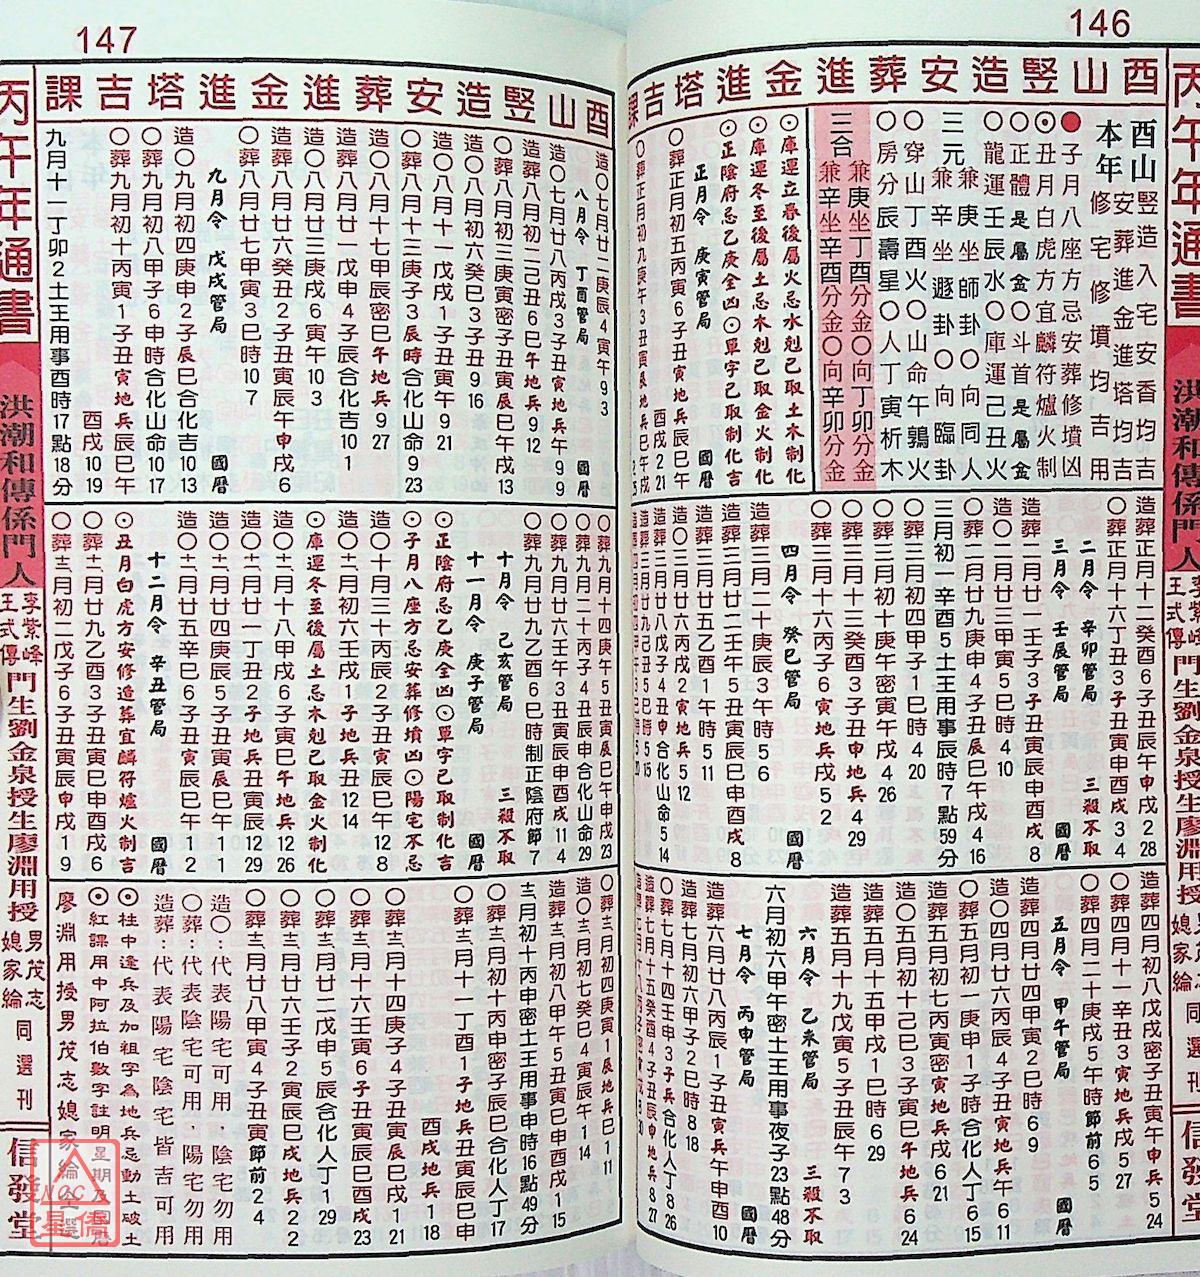 146
酉山豎造安葬進金進塔吉課
酉山豎造入宅安香均吉
安葬進金進塔均吉
本年修宅修墳均吉用
●子月八座方忌安葬修墳凶
⊙丑月白虎方宜麟符爐火制
○正體是屬金○斗首是屬金
○龍運壬辰水○庫運己丑火
三元兼庚坐師卦○向同人
兼辛坐遯卦○向臨卦
○穿山丁酉火○山命午鶉火
○房分辰壽星○人丁寅析木
三合兼庚坐丁酉分金○向丁卯分金
兼辛坐辛酉分金○向辛卯分金
⊙庫運立春後屬火忌水剋已取土木制化
⊙庫運冬至後屬土忌木剋已取金火制化
⊙正陰府忌乙庚全凶⊙單字已取制化吉
正月令 庚寅管局 國曆
○葬正月初五丙寅6子丑寅地兵辰巳午
酉戌2 21
造葬正月十二癸酉6子丑辰午申戌2 28
○葬正月十六丁丑3子丑寅申酉戌3 4
二月令 辛卯管局 三殺不取
三月令 壬辰管局 國曆
造葬二月廿一壬子3子丑寅辰申酉戌8
造○二月廿三甲寅5巳時4 10
○葬二月廿九庚申4子丑辰巳午戌4 16
三月初一辛酉5土王用事辰時7點59分
○葬三月初四甲子1巳時4 20
○葬三月初十庚午密寅午戌4 26
○葬三月十三癸酉3子丑申地兵4 29
○葬三月十六丙子6寅地兵戌5 2
四月令 癸巳管局 國曆
造葬三月二十庚辰3午時5 6
造葬三月廿二壬午5丑寅辰申酉戌8
造葬三月廿五乙酉1午時5 11
造○三月廿八戊子2寅地兵5 12
造葬四月初八戊戌密子丑寅午申兵5 24
○葬四月十一辛丑3子寅地兵戌5 27
○葬四月二十庚戌5午時節前6 5
五月令 甲午管局 國曆
造葬四月廿四甲寅2巳時6 9
造○四月廿六丙辰4子丑寅地兵午6 11
○葬五月初一庚申1子時合化人丁6 15
造葬五月初七丙寅密子丑寅地兵戌6 21
造○五月初十己巳3子丑寅辰巳午地兵6 24
造葬五月十五甲戌1巳時6 29
造葬五月十九戊寅5子丑辰午7 3
六月令 乙未管局 三殺不取
六月初六甲午密土王用事夜子23點48分
七月令 丙申管局 國曆
造葬六月廿八丙辰1子丑寅兵午申酉10
造葬七月初六甲子2巳時8 18
147
酉山豎造安葬進金進塔吉課
造○七月廿二庚辰4寅午9 3
八月令 丁酉管局 國曆
造○七月廿八丙戌3子丑寅地兵午9 9
造葬八月初二己丑6巳午地兵9 12
○葬八月初三庚寅密子丑寅辰巳午戌13
造○八月初六癸巳3子丑9 16
造○八月十一戊戌1丑寅午9 21
○葬八月十三庚子3辰時合化山命9 23
造○八月十七甲辰密巳午地兵9 27
造葬八月廿一戊申4子辰合化吉10 1
造○八月廿三庚戌6寅午10 3
○葬八月廿六癸丑2子丑寅辰午申戌6
○葬八月廿七甲寅3巳時10 7
九月令 戊戌管局 國曆
造○九月初四庚申2子辰巳合化吉10 13
○葬九月初八甲子6申時合化山命10 17
○葬九月初十丙寅1子丑寅地兵辰巳午
酉戌10 19
九月十一丁卯2土王用事酉時17點18分
○葬九月十四庚午5丑寅辰巳午申戌23
○葬九月二十丙子4丑辰申合化山命29
○葬九月廿六壬午3丑寅辰申酉戌11 4
○葬九月廿九乙酉6巳時制正陰府節7
十月令 己亥管局 三殺不取
十一月令 庚子管局 國曆
⊙正陰府忌乙庚全凶⊙單字已取制化吉
⊙子月八座方忌安葬修墳凶⊙陽宅不忌
造○十月三十丙辰2子丑寅辰巳午12 8
造○十一月初六壬戌1子地兵丑12 14
⊙庫運冬至後屬土忌木剋已取金火制化
造○十一月十八甲戌6子寅巳午地兵12 26
造○十一月廿一丁丑2子地兵丑寅辰12 29
造○十一月廿四庚辰5子丑寅辰巳午1 1
造○十一月廿五辛巳6子丑寅辰巳午1 2
十二月令 辛丑管局 國曆
⊙丑月白虎方安修造葬宜麟符爐火制吉
○葬十一月廿九乙酉3子丑寅巳申酉戌6
○葬十二月初二戊子6子丑寅辰申戌1 9
○葬十二月初四庚寅1辰地兵巳1 11
造○十二月初七癸巳4寅辰午1 14
造葬十二月初八甲午5丑寅辰巳戌1 15
十二月初十丙申密土王用事申時16點49分
○葬十二月初十丙申密子辰巳合化人丁17
○葬十二月十一丁酉1子地兵丑寅辰巳申
酉戌地兵1 18
○葬十二月十四庚子4子丑寅辰巳戌1 21
○葬十二月十六壬寅6子丑寅辰巳酉戌23
○葬十二月廿二戊申5辰合化人丁1 29
○葬十二月廿六壬子2寅辰巳戌地兵2 2
○葬十二月廿八甲寅4子丑寅節前2 4
造○:代表陽宅可用·陰宅勿用
○葬:代表陰宅可用·陽宅勿用
造葬:代表陽宅陰宅皆吉可用
⊙柱中逢兵及加祖字為地兵忌動土破土
⊙紅課用中阿拉伯數字註明星期及國曆
廖淵用授男茂志媳家綸全選
丙午年通書
洪潮和傳係門人
李紫峰
王式傳
門生劉金泉授生廖淵用授
男茂志
媳家綸
同選刊
信發堂